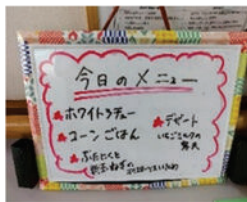 今日のメニュー
ホワイトシチュー
コーンごはん
ぶたにくと
新玉ねぎの
デザート
いちごミルクの